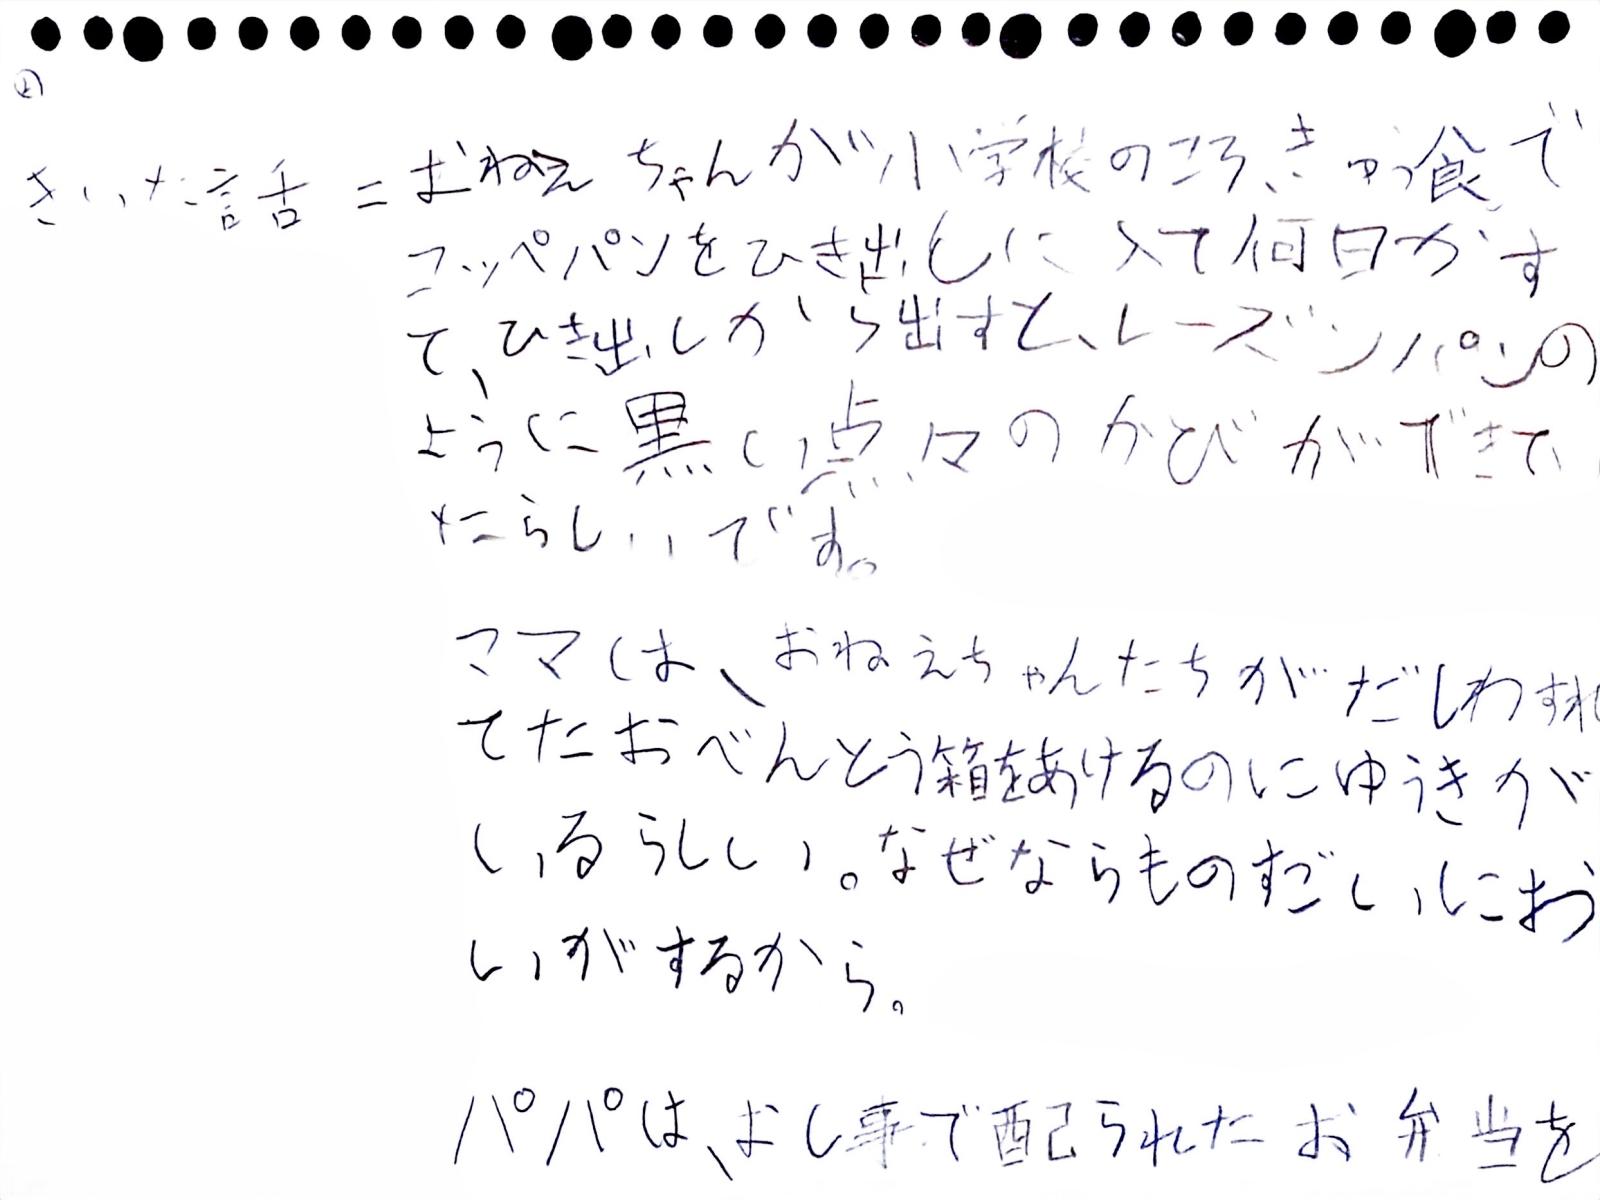 きいた話=おねえちゃんが小学校のころ、きゅう食で
コッペパンをひき出しに入て何日かす
て、ひき出しから出すと、レーズンパンの
ように黒い点々のかびができてい
たらしいです。
ママは、おねえちゃんたちがだしわすれ
てたおべんとう箱をあけるのにゆうきが
いるらしい。なぜならものすごいにお
いがするから。
パパは、おし事で配られたお弁当を